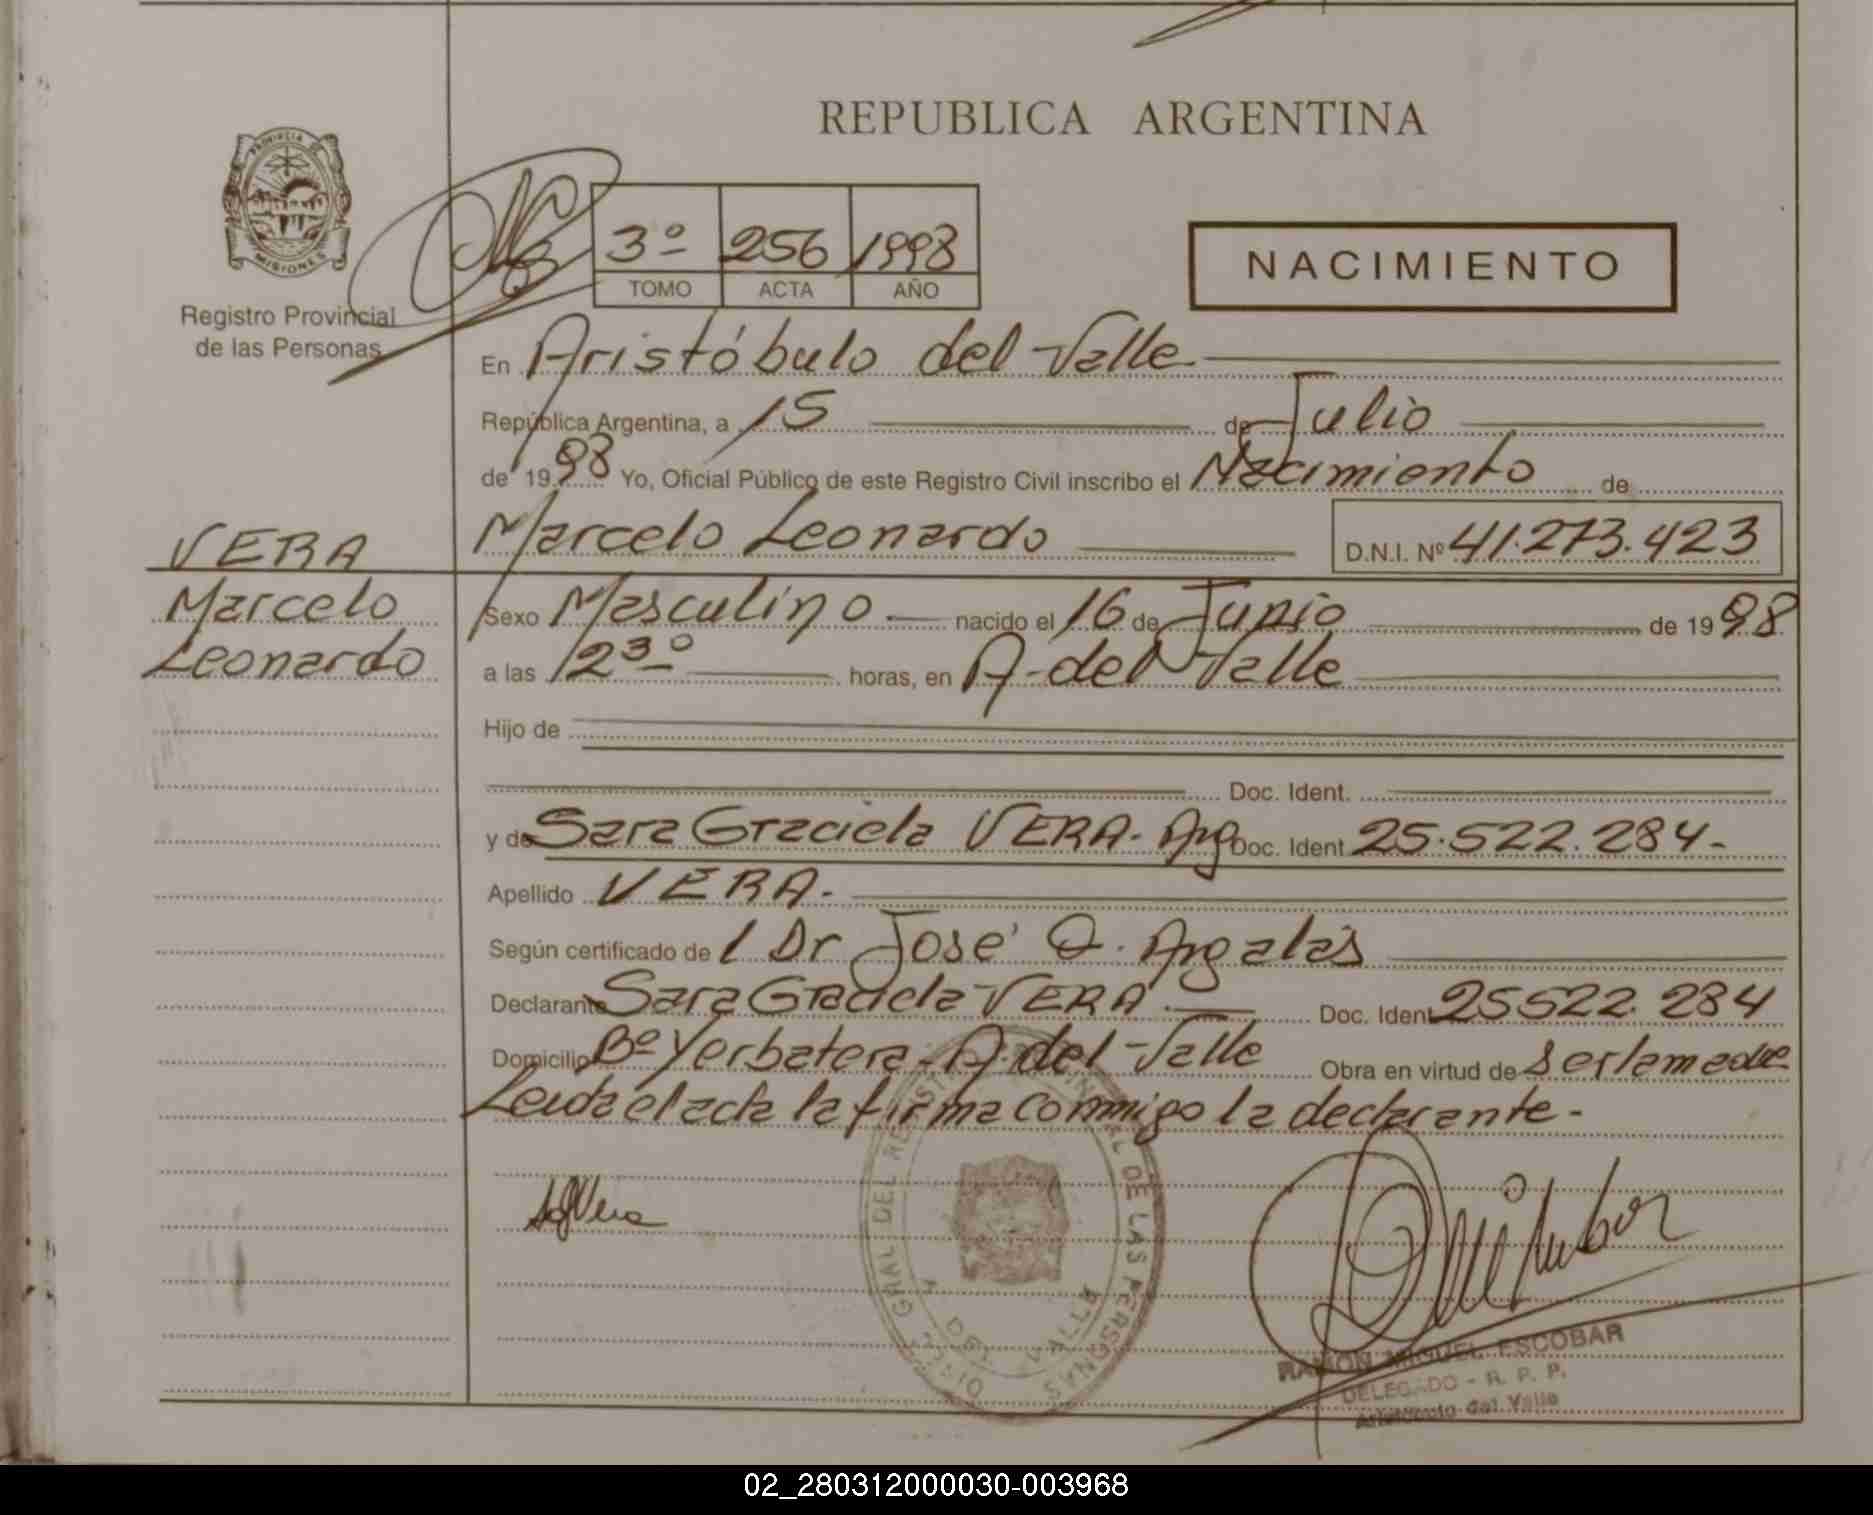 REPUBLICA ARGENTINA
PROVINCIA DE
MISIONES
Registro Provincial
de las Personas
3º 256 1998
TOMO ACTA AÑO
NACIMIENTO
En Aristóbulo del Valle
República Argentina, a 15 de Julio
de 1998 Yo, Oficial Público de este Registro Civil inscribo el Nacimiento de
VERA
Marcelo Leonardo D.N.I. Nº 41.273.423
Marcelo
Leonardo
Sexo Masculino nacido el 16 de Junio de 1998
a las 12 3º horas, en A. del Valle
Hijo de
Doc. Ident.
y de Sara Graciela VERA. Arg Doc. Ident 25.522.284-
Apellido VERA.
Según certificado de l Dr José O. Argalas
Declarante Sara Graciela VERA Doc. Ident 25522.284
Domicilio Bº Yerbatera - A. del Valle Obra en virtud de ser la madre
Leida el acta la firma conmigo la declarante.
SgVera
GRAL DEL REGISTRO PROVINCIAL DE LAS PERSONAS
A. DEL VALLE
RAMON MIGUEL ESCOBAR
DELEGADO - R. P. P.
Aristóbulo del Valle
02_280312000030-003968